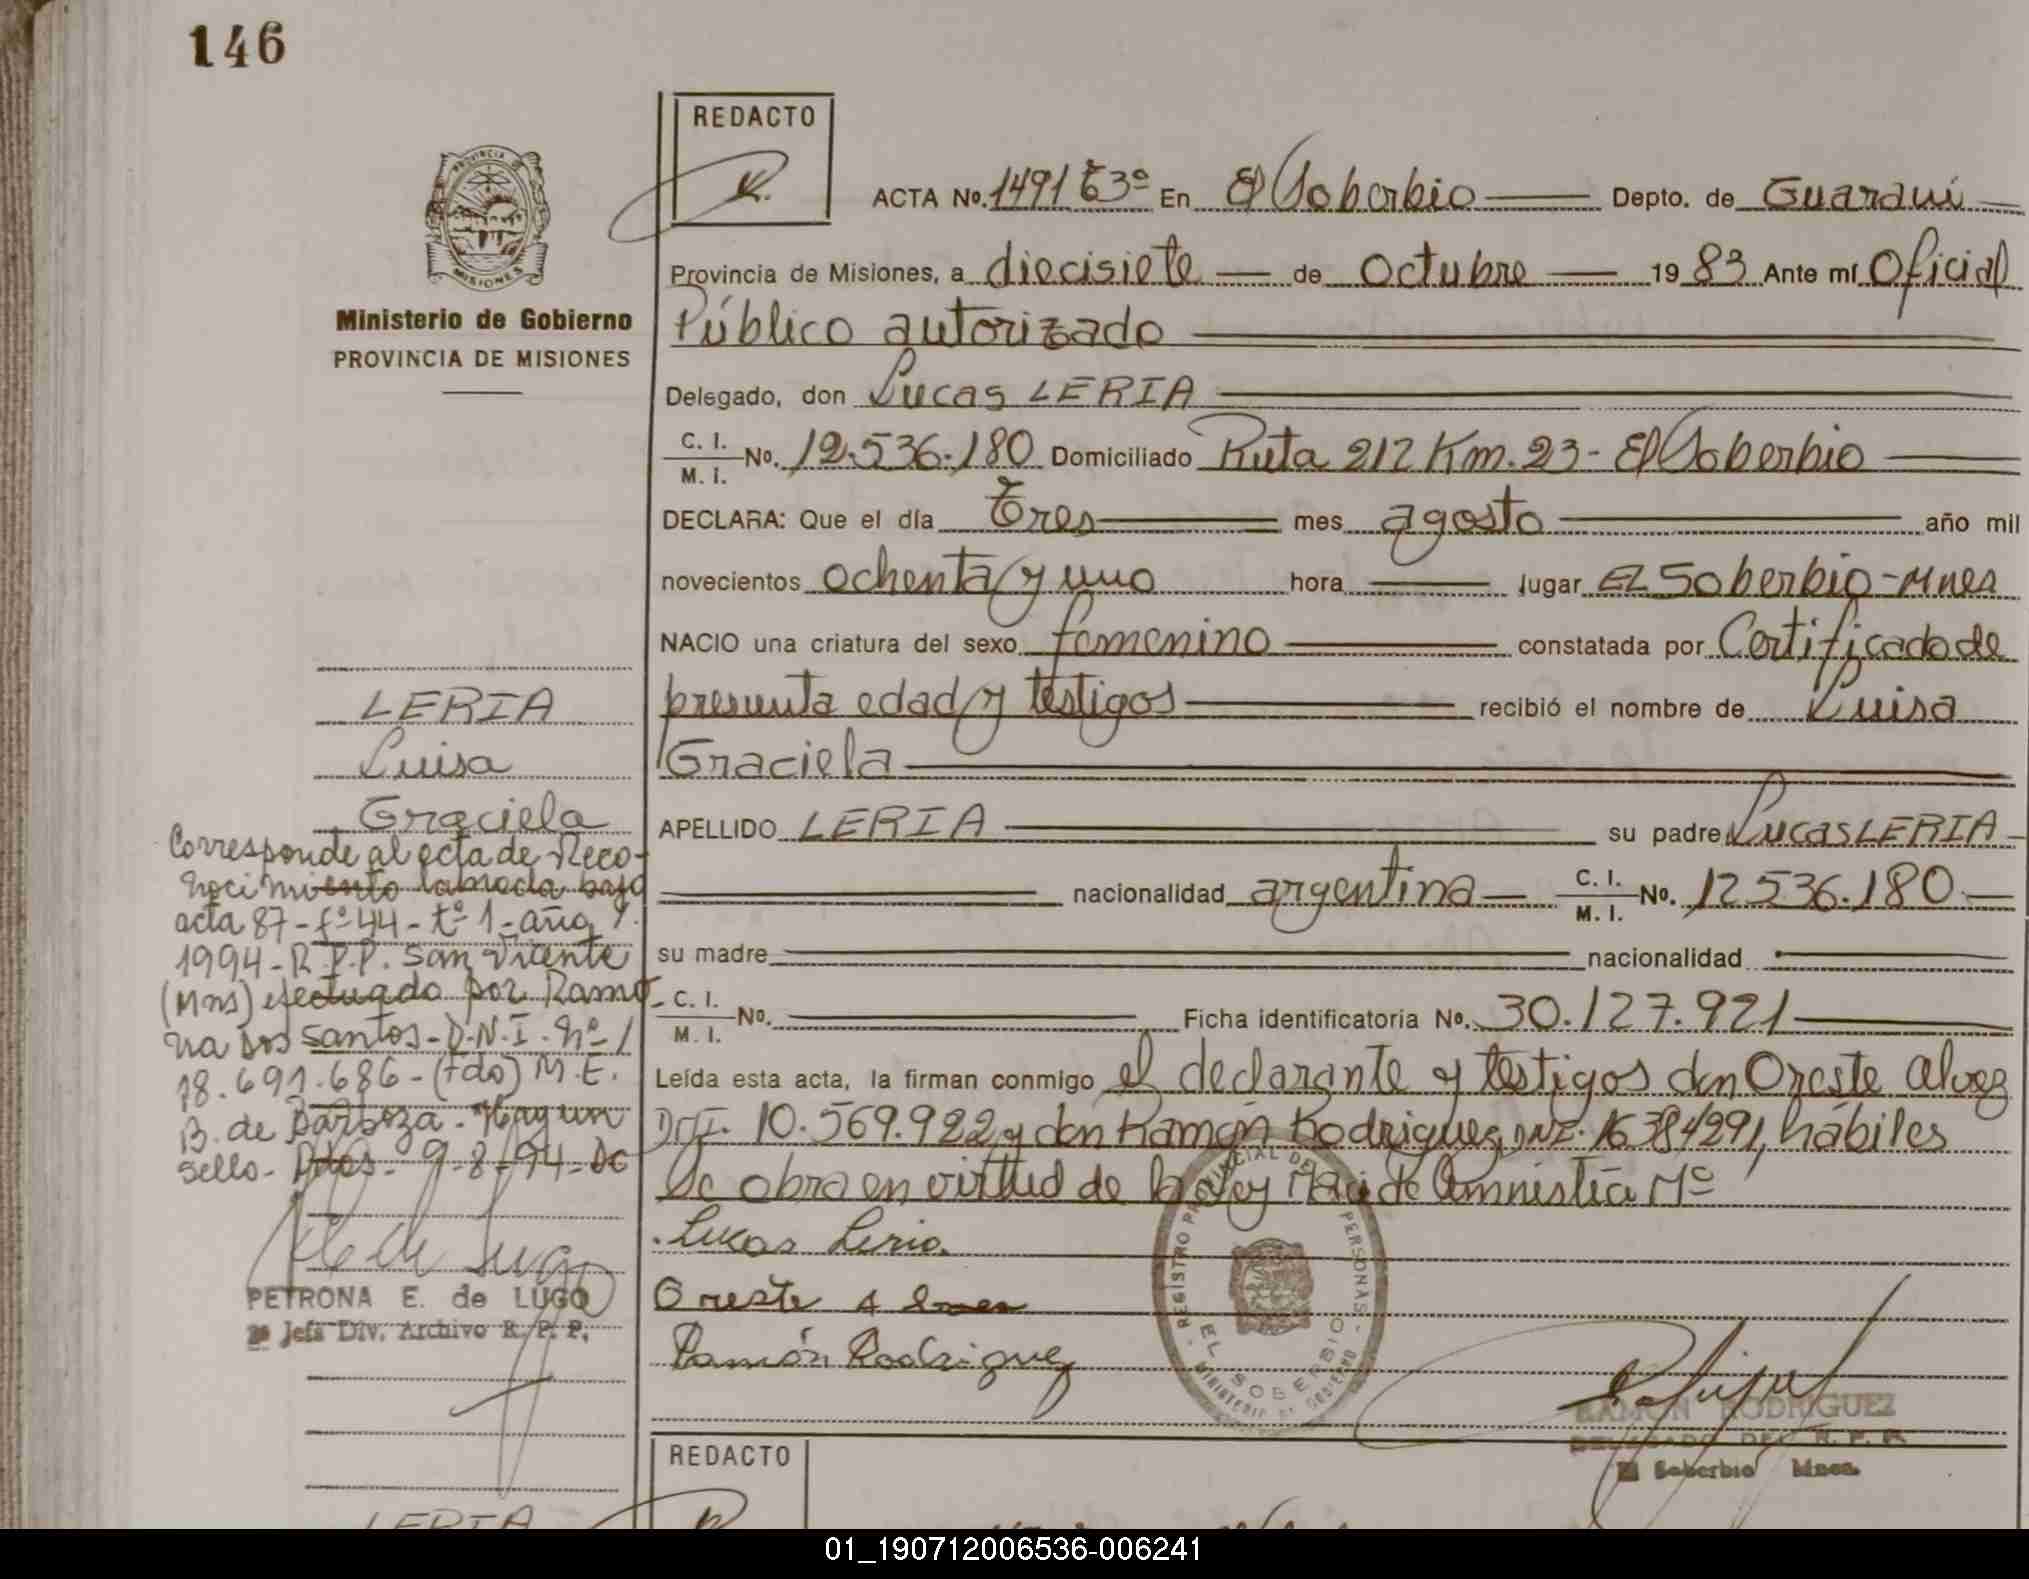 146
REDACTO
ACTA No. 1491 T3º En El Soberbio Depto. de Guaraní
PROVINCIA DE MISIONES
Provincia de Misiones, a diecisiete de Octubre 1983 Ante mí Oficial
Ministerio de Gobierno
PROVINCIA DE MISIONES
Público autorizado
Delegado, don Lucas LERIA
C. I. M. I. No. 12.536.180 Domiciliado Ruta 212 Km. 23 - El Soberbio
DECLARA: Que el día Tres mes agosto año mil
novecientos ochenta y uno hora lugar EL Soberbio - Mnes
NACIO una criatura del sexo femenino constatada por Certificado de
presunta edad y testigos recibió el nombre de Luisa
Graciela
APELLIDO LERIA su padre Lucas LERIA
nacionalidad argentina C. I. M. I. No. 12.536.180
su madre nacionalidad
C. I. M. I. No. Ficha identificatoria No. 30.127.921
Leída esta acta, la firman conmigo el declarante y testigos don Oreste Alvez
10.569.922 y don Ramón Rodriguez, DNI. 16384291, hábiles
Se obra en virtud de la Ley de Amnistía
Lucas Leria
Oreste
Ramón Rodriguez
LERIA
Luisa
Graciela
Corresponde al acta de Reco-
nocimiento labrada bajo
acta 87 - fº 44 - tº 1 - año
1994 - R.P.P. San Vicente
(Mns) efectuado por Ramo-
na dos Santos - D.N.I. Nº
18.691.686 - (fdo) M.E.
B. de Barboza - Hay un
sello - Pdas - 9-8-94 - DC
PETRONA E. de LUGO
Jefa Div. Archivo R. P. P.
REGISTRO PROVINCIAL DE PERSONAS
EL SOBERBIO
MINISTERIO DE GOBIERNO
RAMON RODRIGUEZ
DELEGADO DEL R. P. P.
El Soberbio Mnes.
REDACTO
LERIA
01_190712006536-006241